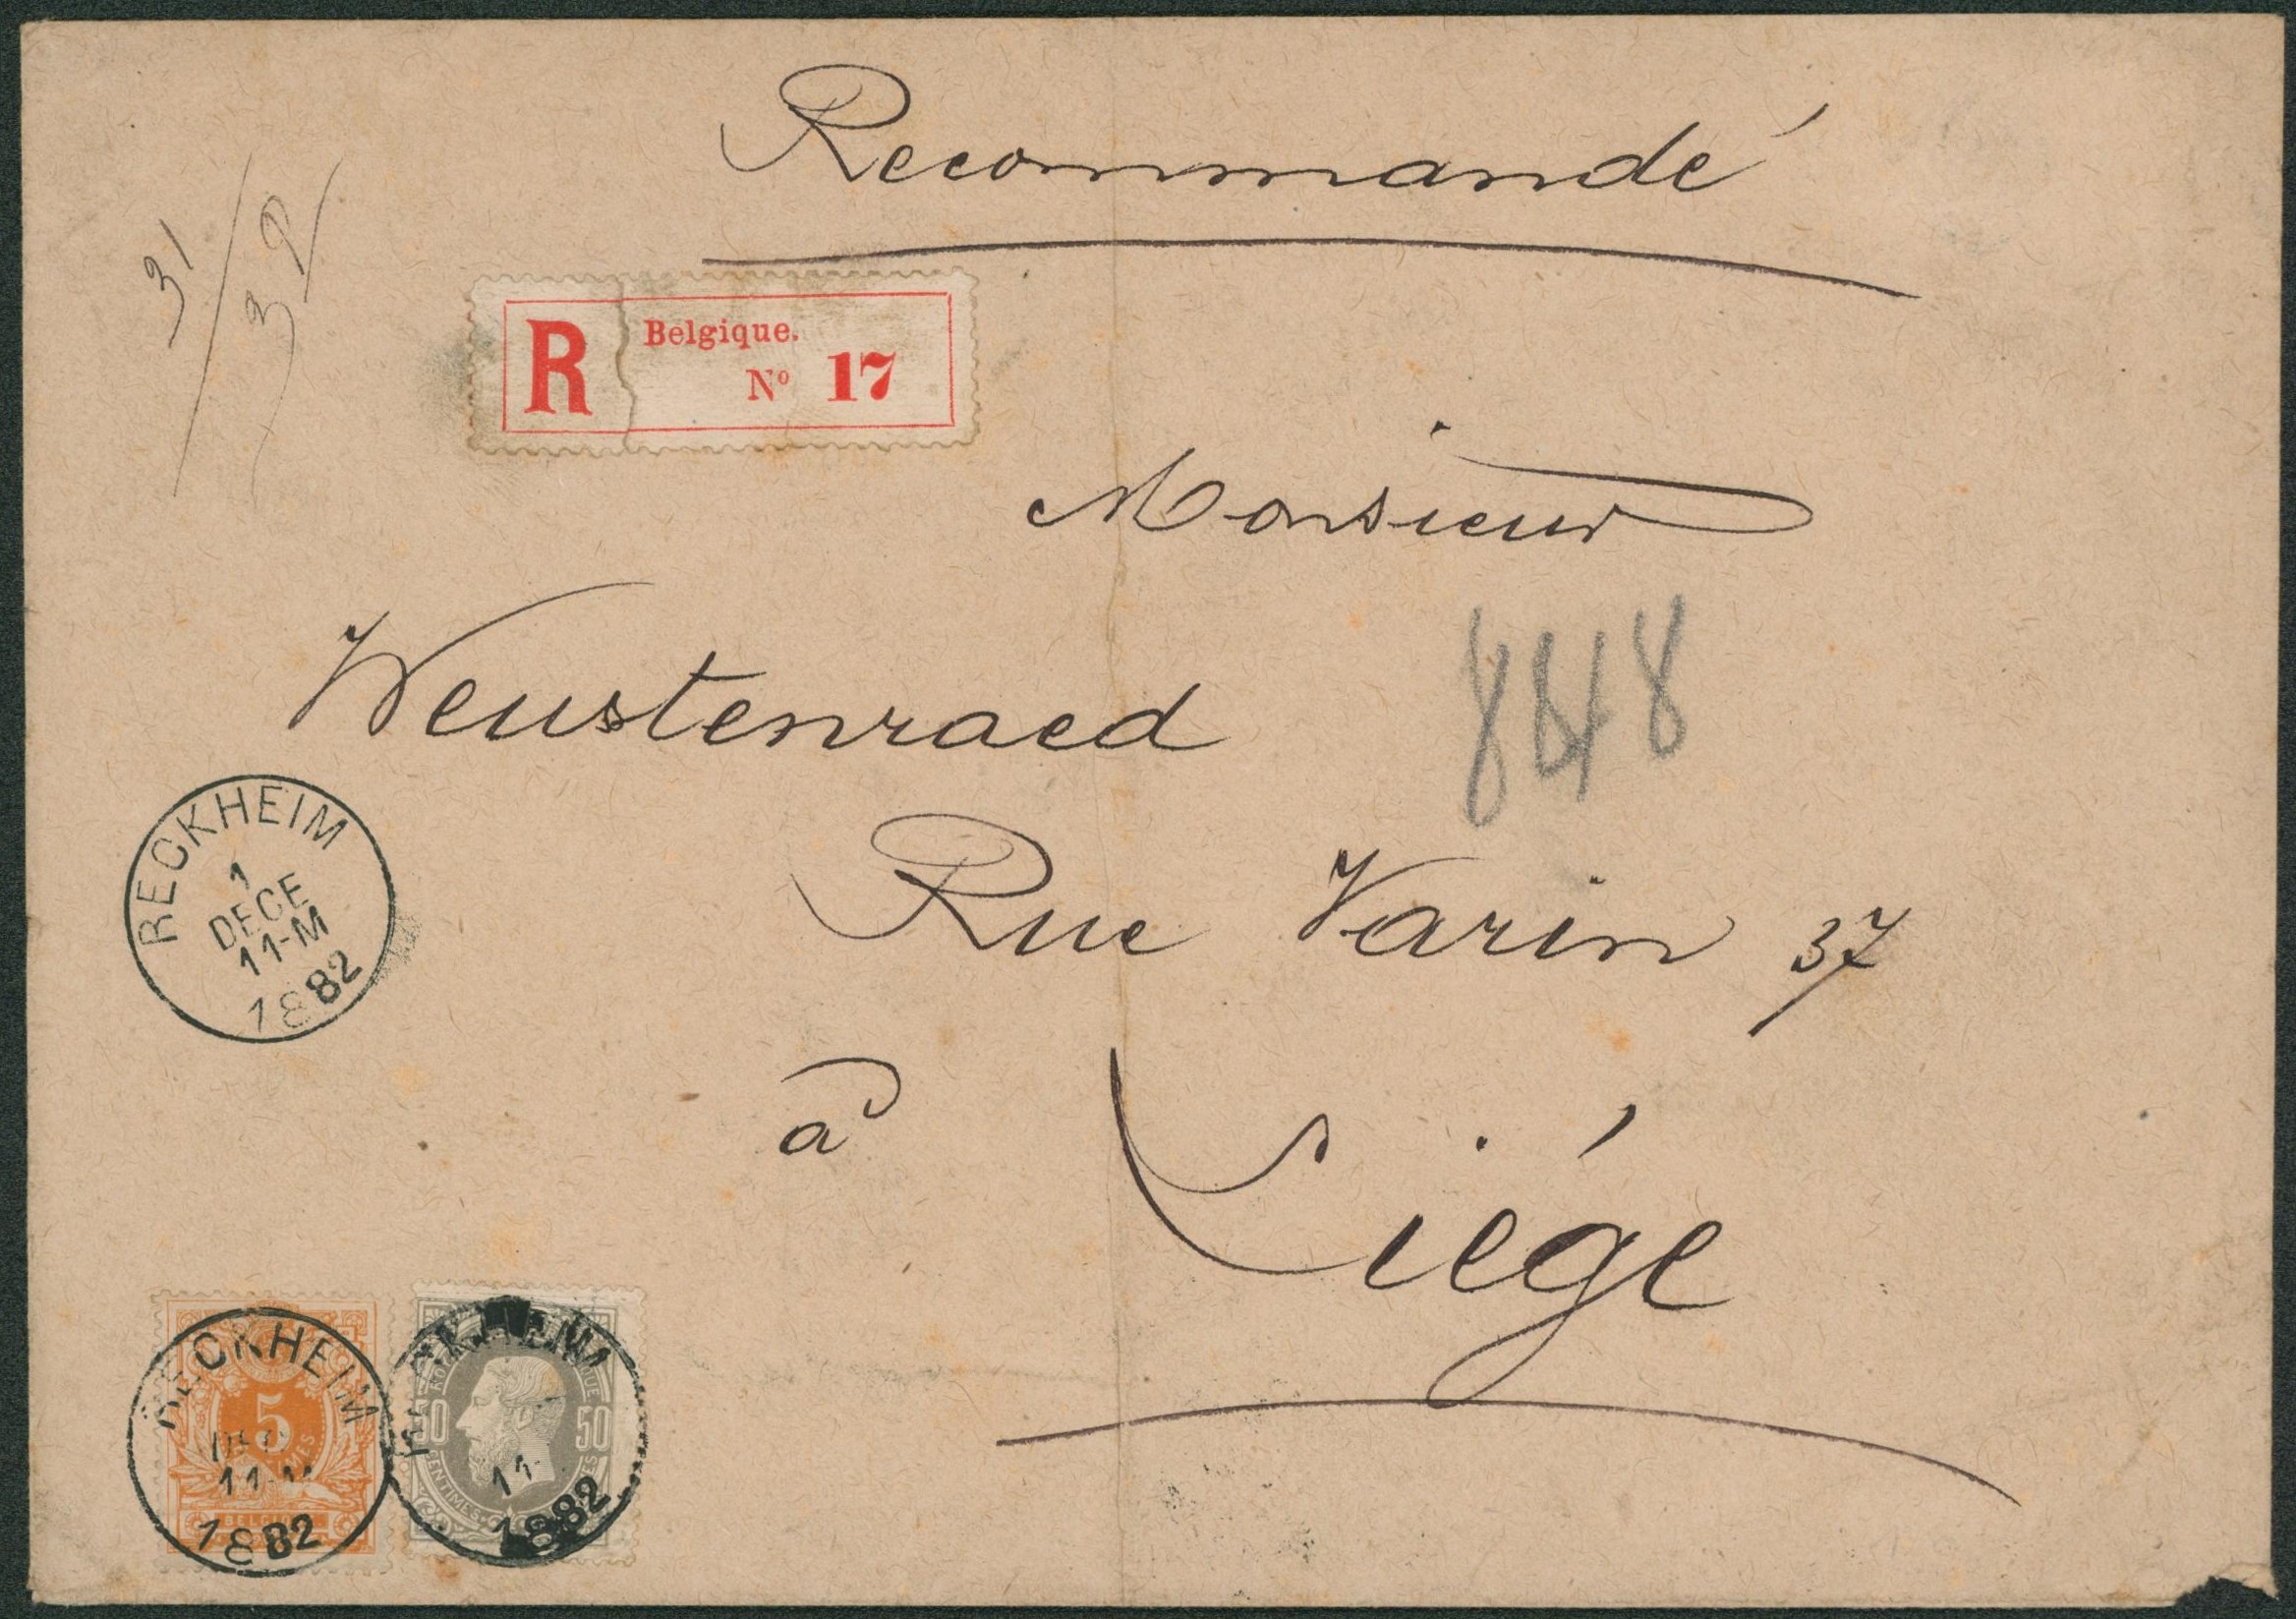 Recommandé
31
32
R
Belgique.
Nº 17
Monsieur
Weustenraed
848
Rue Varin 37
à
Liége
RECKHEIM
1
DECE
11-M
1882
RECKHEIM
11-M
1882
5
BELGIQUE
RECKHEIM
11-
1882
50 50
CENTIMES